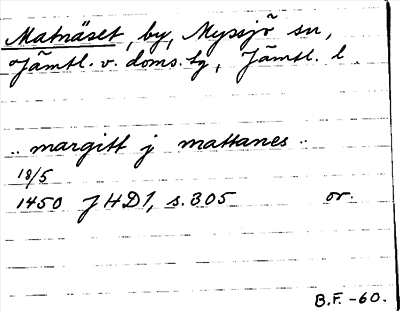 Matnäset, by, Myssjö sn,
Jämtl. v. doms. tg, Jämtl. l
.. margitt j mattanes ..
18/5
1450 JHD1, s. 305 or.
B.F. -60.